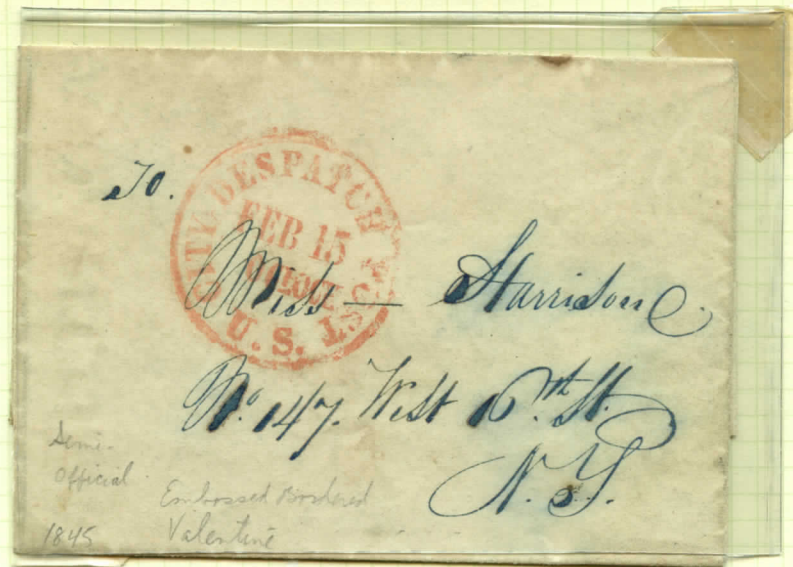 To.
CITY DESPATCH POST
FEB 15
O'CLOCK
U.S.
Miss — Harrison
No. 147. West 16th St.
N. Y.
Semi-
Official
Embossed Bordered
1845 Valentine